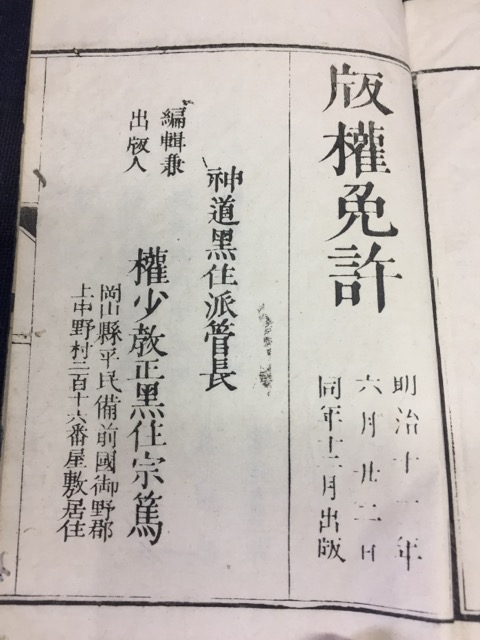 版權免許
明治十一年
六月廿二日
同年十二月出版
神道黒住派管長
編輯兼
出版人
權少教正黒住宗篤
岡山縣平民備前國御野郡
上中野村二百十六番屋敷居住